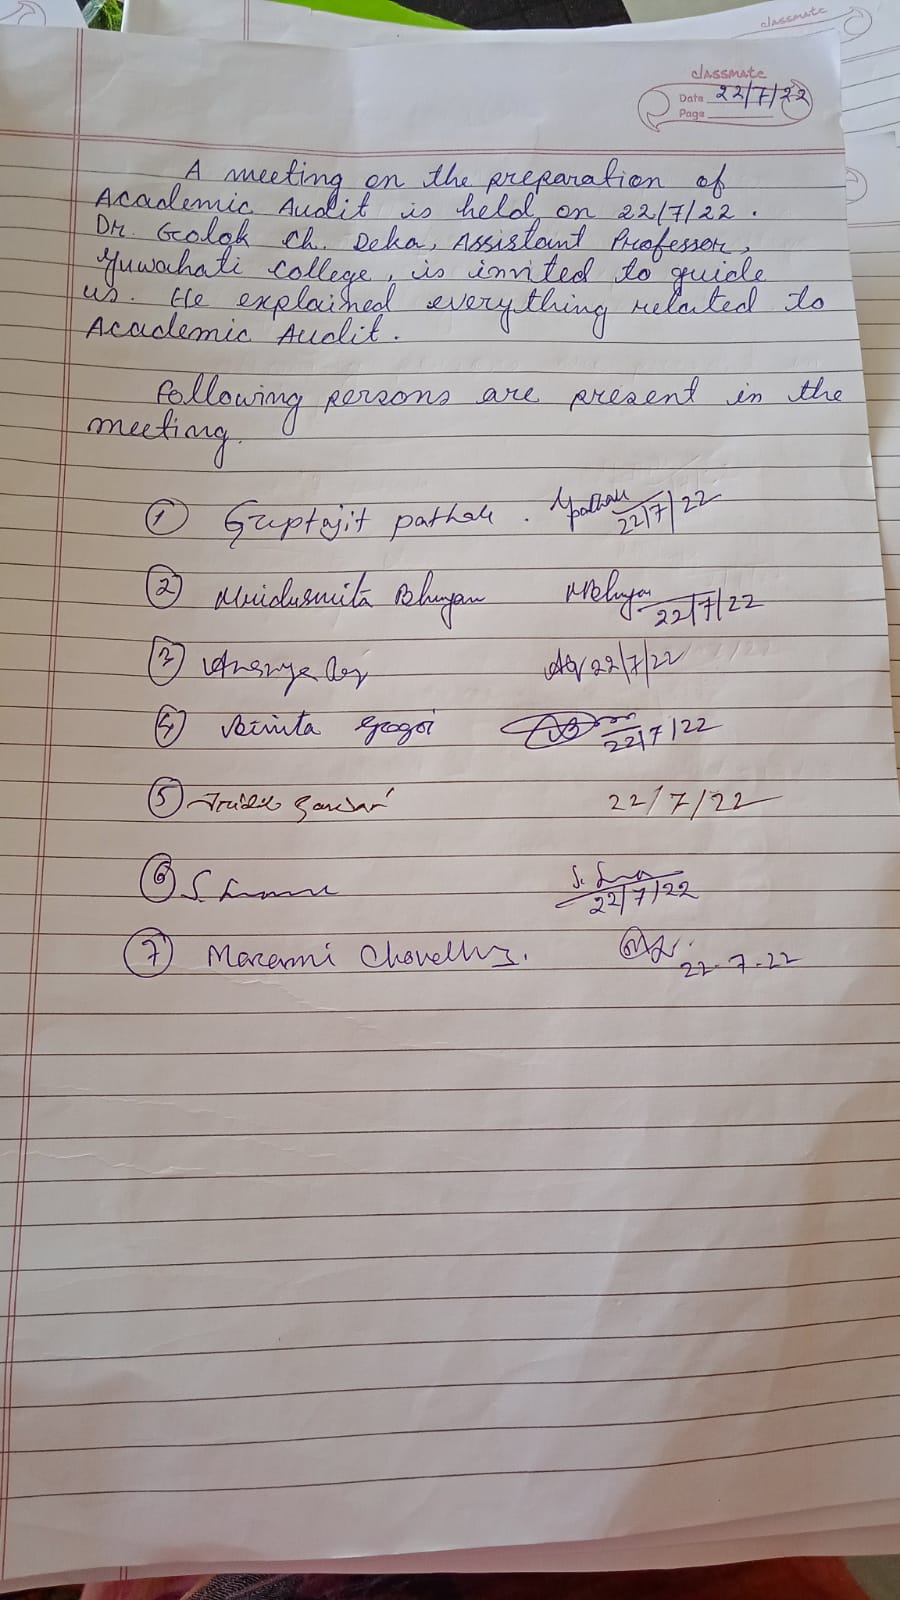 classmate
classmate
Date 22/7/22
Page
A meeting on the preparation of
Academic Audit is held on 22/7/22.
Dr. Golok Ch. Deka, Assistant Professor,
Guwahati College, is invited to guide
us. He explained everything related to
Academic Audit.
Following persons are present in the
meeting.
1 Guptajit pathak. Gpathak 22/7/22
2 Mridusmita Bhuyan MBhuyan 22/7/22
3 Ananya Dey 22/7/22
4 Binita Gogoi 22/7/22
5 22/7/22
6 S. 22/7/22
7 Marami Choudhury. 22-7-22